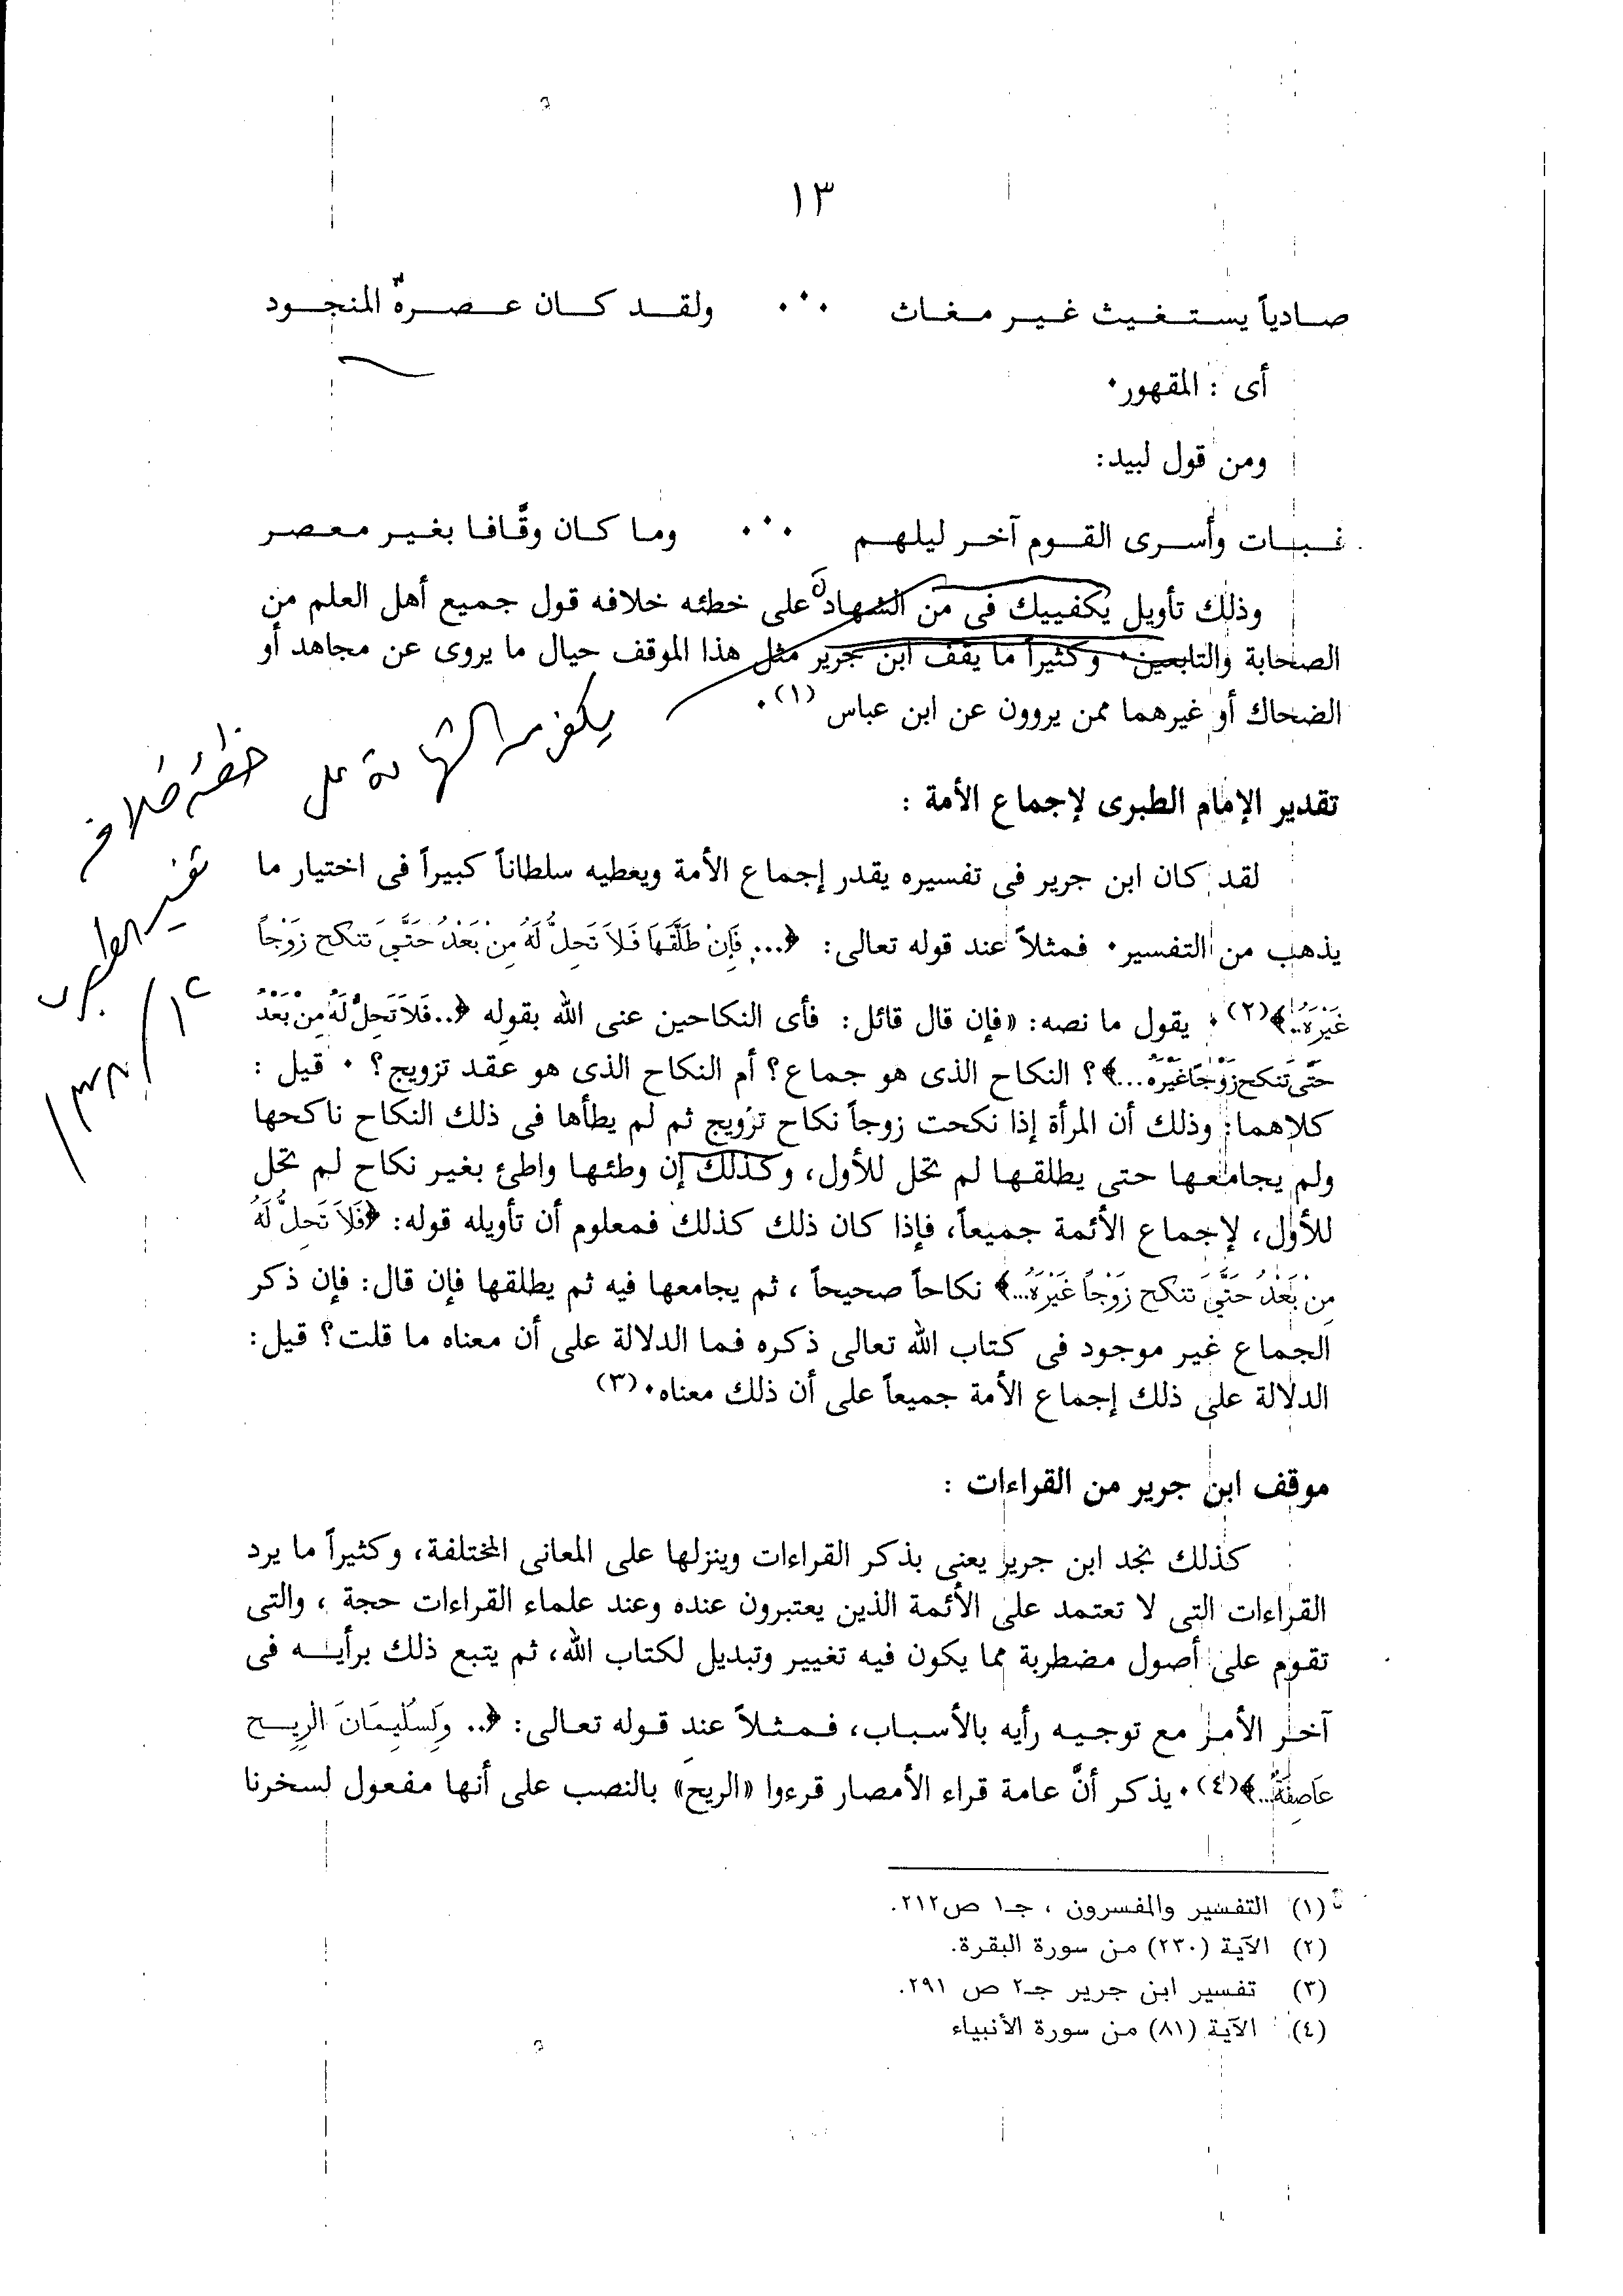 ١٣
صادياً يستغيث غير مغاث ∴ ولقد كان عصرة المنجود
أى : المقهور٠
ومن قول لبيد:
فبات وأسرى القوم آخر ليلهم ∴ وما كان وقَّافا بغير معصر
وذلك تأويل يكفييك فى من الشهادة على خطئه خلافه قول جميع أهل العلم من
الصحابة والتابعين٠ وكثيراً ما يقف ابن جرير مثل هذا الموقف حيال ما يروى عن مجاهد أو
الضحاك أو غيرهما ممن يروون عن ابن عباس (١).
يكفى من الشهادة على خطئه خلافه
تفسير الطبرى
تقدير الإمام الطبرى لإجماع الأمة :
لقد كان ابن جرير فى تفسيره يقدر إجماع الأمة ويعطيه سلطاناً كبيراً فى اختيار ما
يذهب من التفسير٠ فمثلاً عند قوله تعالى: ﴿... فَإِنْ طَلَّقَهَا فَلاَ تَحِلُّ لَهُ مِنْ بَعْدُ حَتَّىَ تنكح زَوْجاً
غَيْرَهُ..﴾(٢)٠ يقول ما نصه: «فإن قال قائل: فأى النكاحين عنى الله بقوله ﴿..فَلاَ تَحِلُّ لَهُ مِنْ بَعْدُ
حتَّى تَنكح زَوْجًا غَيْرَهُ...﴾؟ النكاح الذى هو جماع؟ أم النكاح الذى هو عقد تزويج؟ ٠ قيل :
كلاهما: وذلك أن المرأة إذا نكحت زوجاً نكاح تزويج ثم لم يطأها فى ذلك النكاح ناكحها
ولم يجامعها حتى يطلقها لم تحل للأول، وكذلك إن وطئها واطئ بغير نكاح لم تحل
للأول، لإجماع الأئمة جميعاً، فإذا كان ذلك كذلك فمعلوم أن تأويله قوله: ﴿فَلاَ تَحِلُّ لَهُ
مِنْ بَعْدُ حَتَّىَ تنكح زَوْجاً غَيْرَهُ...﴾ نكاحاً صحيحاً ، ثم يجامعها فيه ثم يطلقها فإن قال: فإن ذكر
الجماع غير موجود فى كتاب الله تعالى ذكره فما الدلالة على أن معناه ما قلت؟ قيل:
الدلالة على ذلك إجماع الأمة جميعاً على أن ذلك معناه٠(٣)
موقف ابن جرير من القراءات :
كذلك نجد ابن جرير يعنى بذكر القراءات وينزلها على المعانى المختلفة، وكثيراً ما يرد
القراءات التى لا تعتمد على الأئمة الذين يعتبرون عنده وعند علماء القراءات حجة ، والتى
تقوم على أصول مضطربة مما يكون فيه تغيير وتبديل لكتاب الله، ثم يتبع ذلك برأيه فى
آخر الأمر مع توجيه رأيه بالأسباب، فمثلاً عند قوله تعالى: ﴿.. وَلِسُلَيمَانَ الرِيح
عَاصِفَةً..﴾(٤)٠ يذكر أنَّ عامة قراء الأمصار قرءوا «الريحَ» بالنصب على أنها مفعول لسخرنا
(١) التفسير والمفسرون ، جـ١ ص٢١٢.
(٢) الآية (٢٣٠) من سورة البقرة.
(٣) تفسير ابن جرير جـ٢ ص ٢٩١.
(٤) الآية (٨١) من سورة الأنبياء